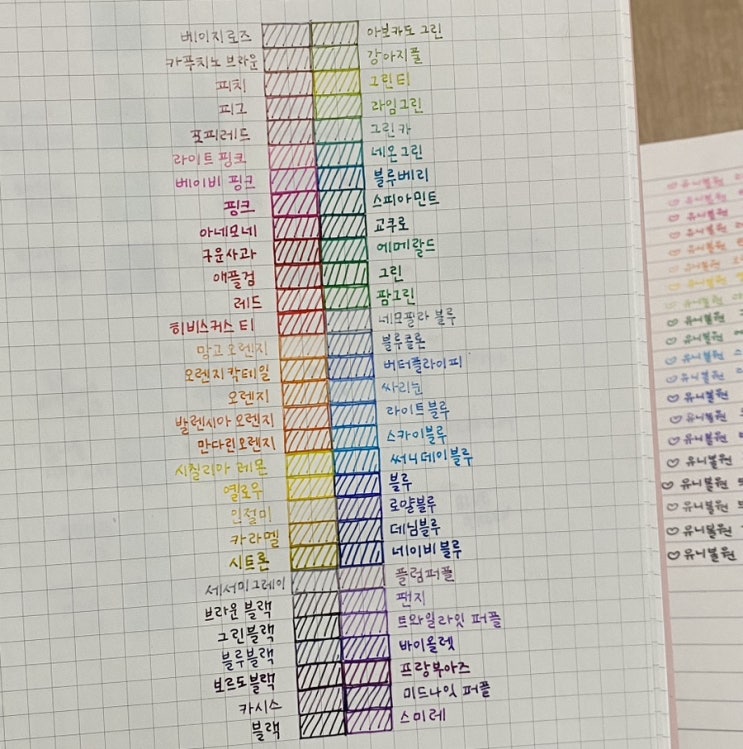 베이지로즈
카푸치노 브라운
피치
피그
포피레드
라이트 핑크
베이비 핑크
핑크
아네모네
구운사과
애플검
레드
히비스커스 티
망고오렌지
오렌지칵테일
오렌지
발렌시아 오렌지
만다린오렌지
시칠리아 레몬
옐로우
인절미
카라멜
시트론
세서미그레이
브라운 블랙
그린블랙
블루블랙
보르도블랙
카시스
블랙
아보카도 그린
강아지풀
그린티
라임그린
그린카
네온그린
블루베리
스피아민트
교쿠로
에메랄드
그린
팜그린
네모필라 블루
블루클론
버터플라이피
싸리눈
라이트블루
스카이블루
써니데이블루
블루
로얄블루
데님블루
네이비 블루
플럼퍼플
팬지
트와일라잇 퍼플
바이올렛
프랑부아즈
미드나잇 퍼플
스미레
유니볼원
유니볼원
유니볼원
유니볼원
유니볼원
유니볼원
유니볼원
유니볼원
유니볼원
유니볼원
유니볼원
유니볼원
유니볼원
유니볼원
유니볼원
유니볼원
유니볼원
유니볼원